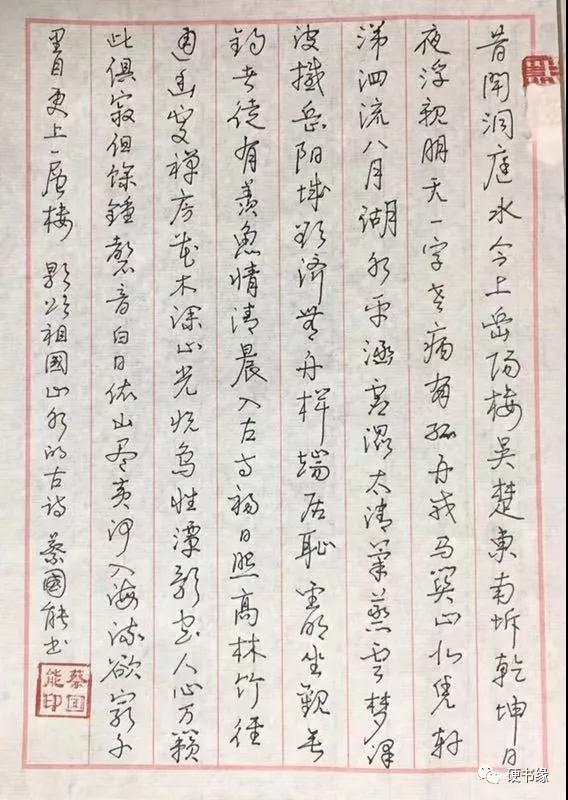 昔闻洞庭水今上岳阳楼吴楚東南坼乾坤日
夜浮親朋无一字老病有孤舟戎马関山北凭轩
涕泗流八月湖水平涵虚混太清氣蒸雲梦泽
波撼岳阳城欲济無舟楫端居恥聖明坐觀垂
钓者徒有羡魚情清晨入古寺初日照高林竹徑
通幽处禅房花木深山光悦鸟性潭影空人心万籁
此俱寂但馀鐘磬音白日依山尽黄河入海流欲窮千
里目更上一层楼 歌颂祖國山水的古诗 蔡國能书
蔡国能印
硬书缘